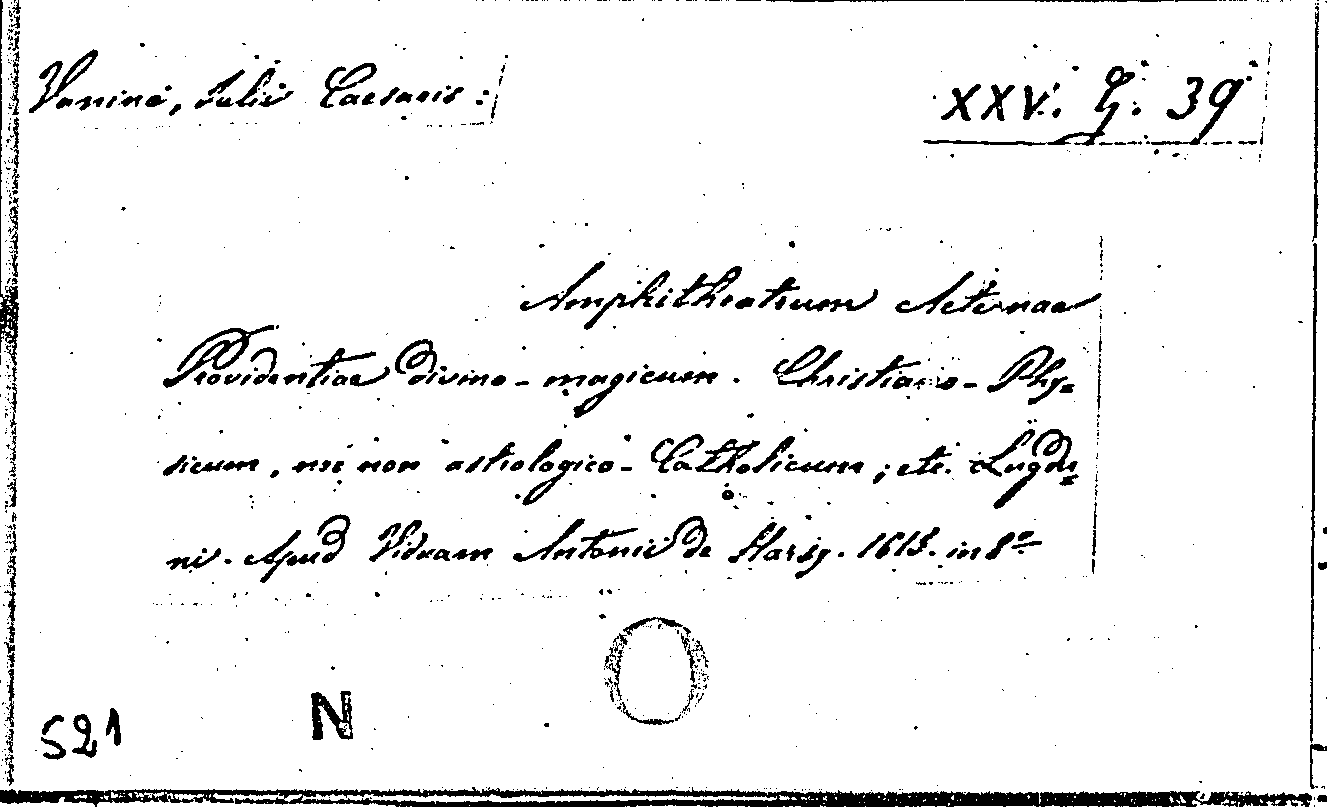 Vanini, Julii Caesaris:
XXV. G. 39
Amphitheatrum Aeternae
Providentiae divino-magicum. Christiano-Phy=
sicum, nec non astrologico-Catholicum; etc. Lugdu=
ni. Apud Viduam Antonii de Harsy. 1615. in 8º
N
521